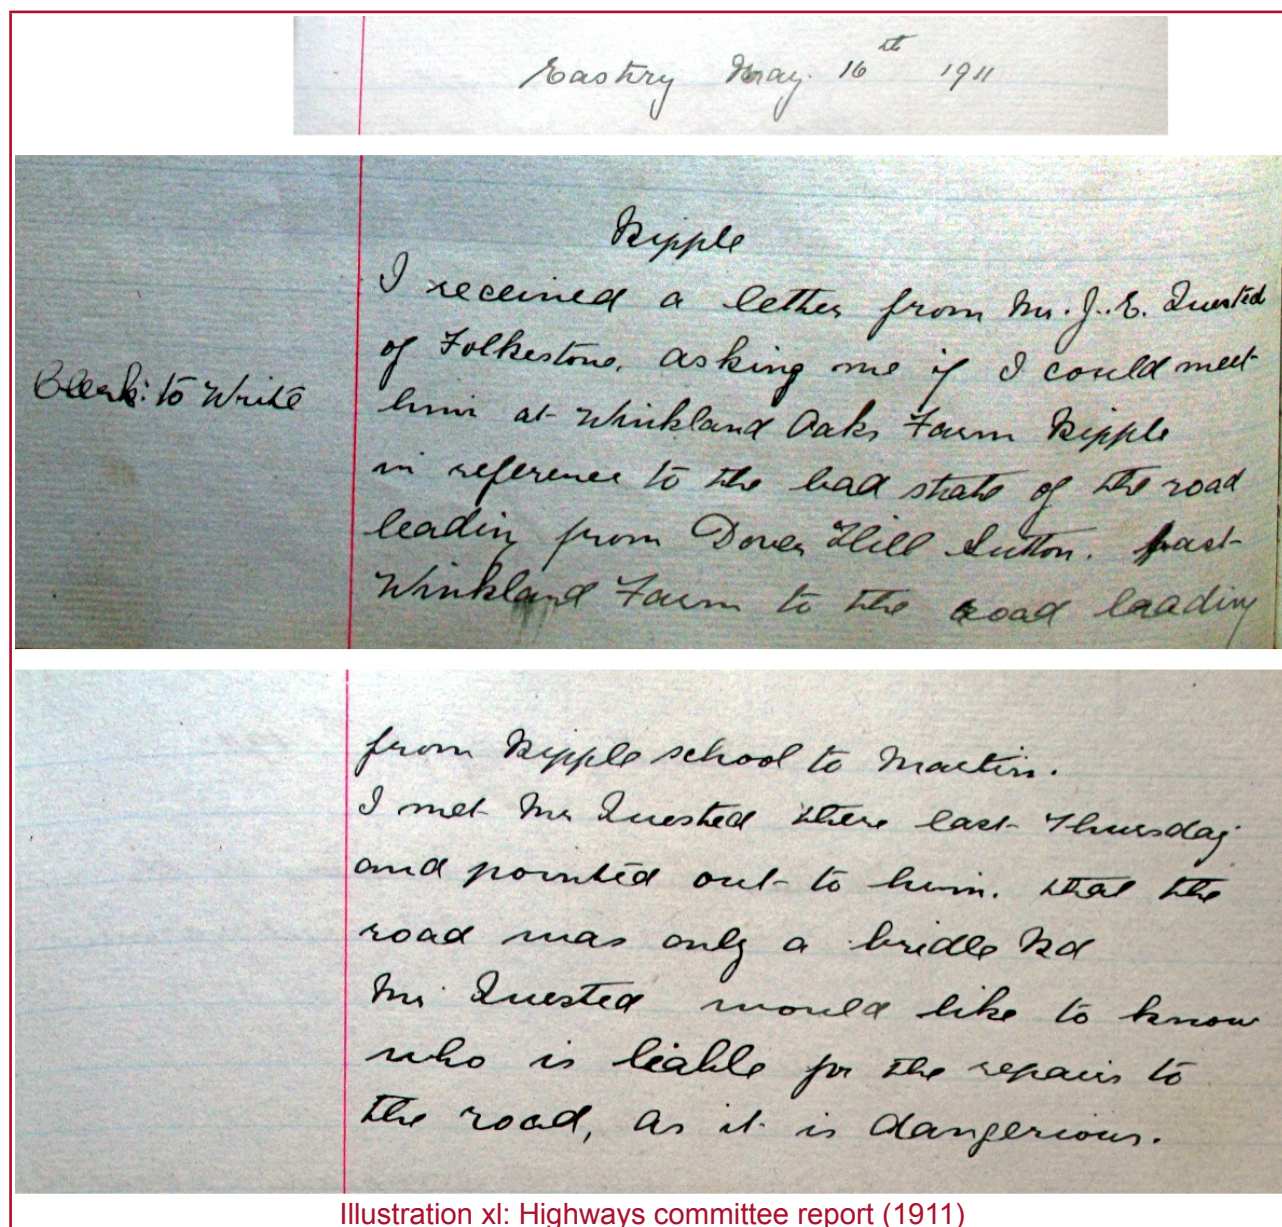 Eastry May. 16th 1911
Ripple
I received a letter from Mr. J. E. Quested
of Folkestone, asking me if I could meet
Clerk: to Write
him at Winkland Oaks Farm Ripple
in reference to the bad state of the road
leading from Dover Hill Sutton. past
Winkland Farm to the road leading
from Ripple school to Martin.
I met Mr Quested there last Thursday
and pointed out to him. that the
road was only a bridle Rd
Mr Quested would like to know
who is liable for the repairs to
the road, as it is dangerious.
Illustration xl: Highways committee report (1911)